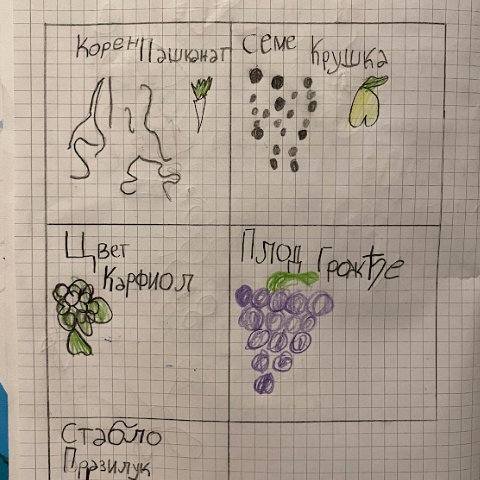 Корен Пашканат
Семе Крушка
Цвет
Карфиол
Плод Грожђе
Стабло
Празилук